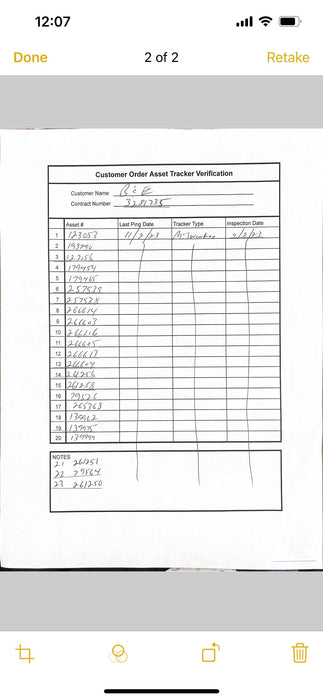 12:07
Done 2 of 2 Retake
Customer Order Asset Tracker Verification
Customer Name B & E
Contract Number
Asset # Last Ping Date Tracker Type Inspection Date
1 123053 11/2/23
2
3
4 179454
5 179465
6 257538
7
8 266614
9 266603
10 266616
11 266605
12 266613
13 266604
14
15 261258
16 79526
17 265368
18 139962
19 139975
20 139999
NOTES
21 261251
22 79564
23 261250